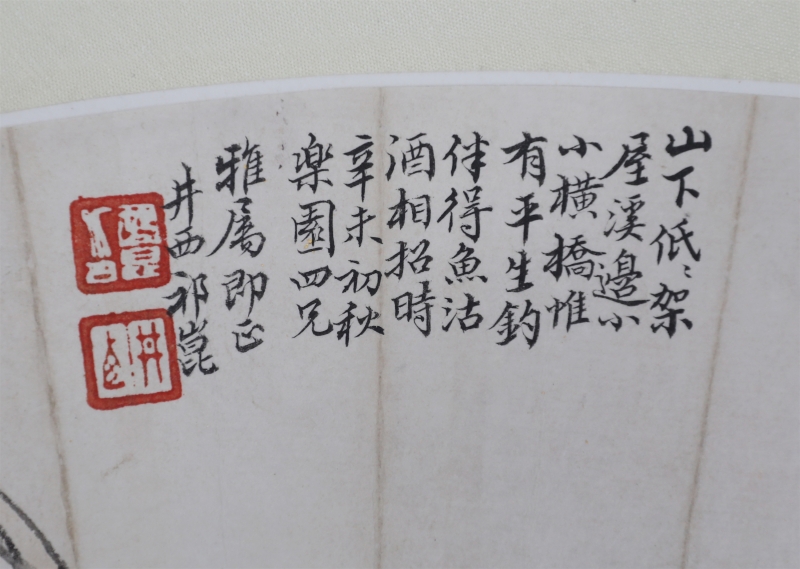 山下低〻架
屋溪邊小
小橫橋惟
有平生釣
伴得魚沽
酒相招時
辛未初秋
楽園四兄
雅属即正
井西祁崑